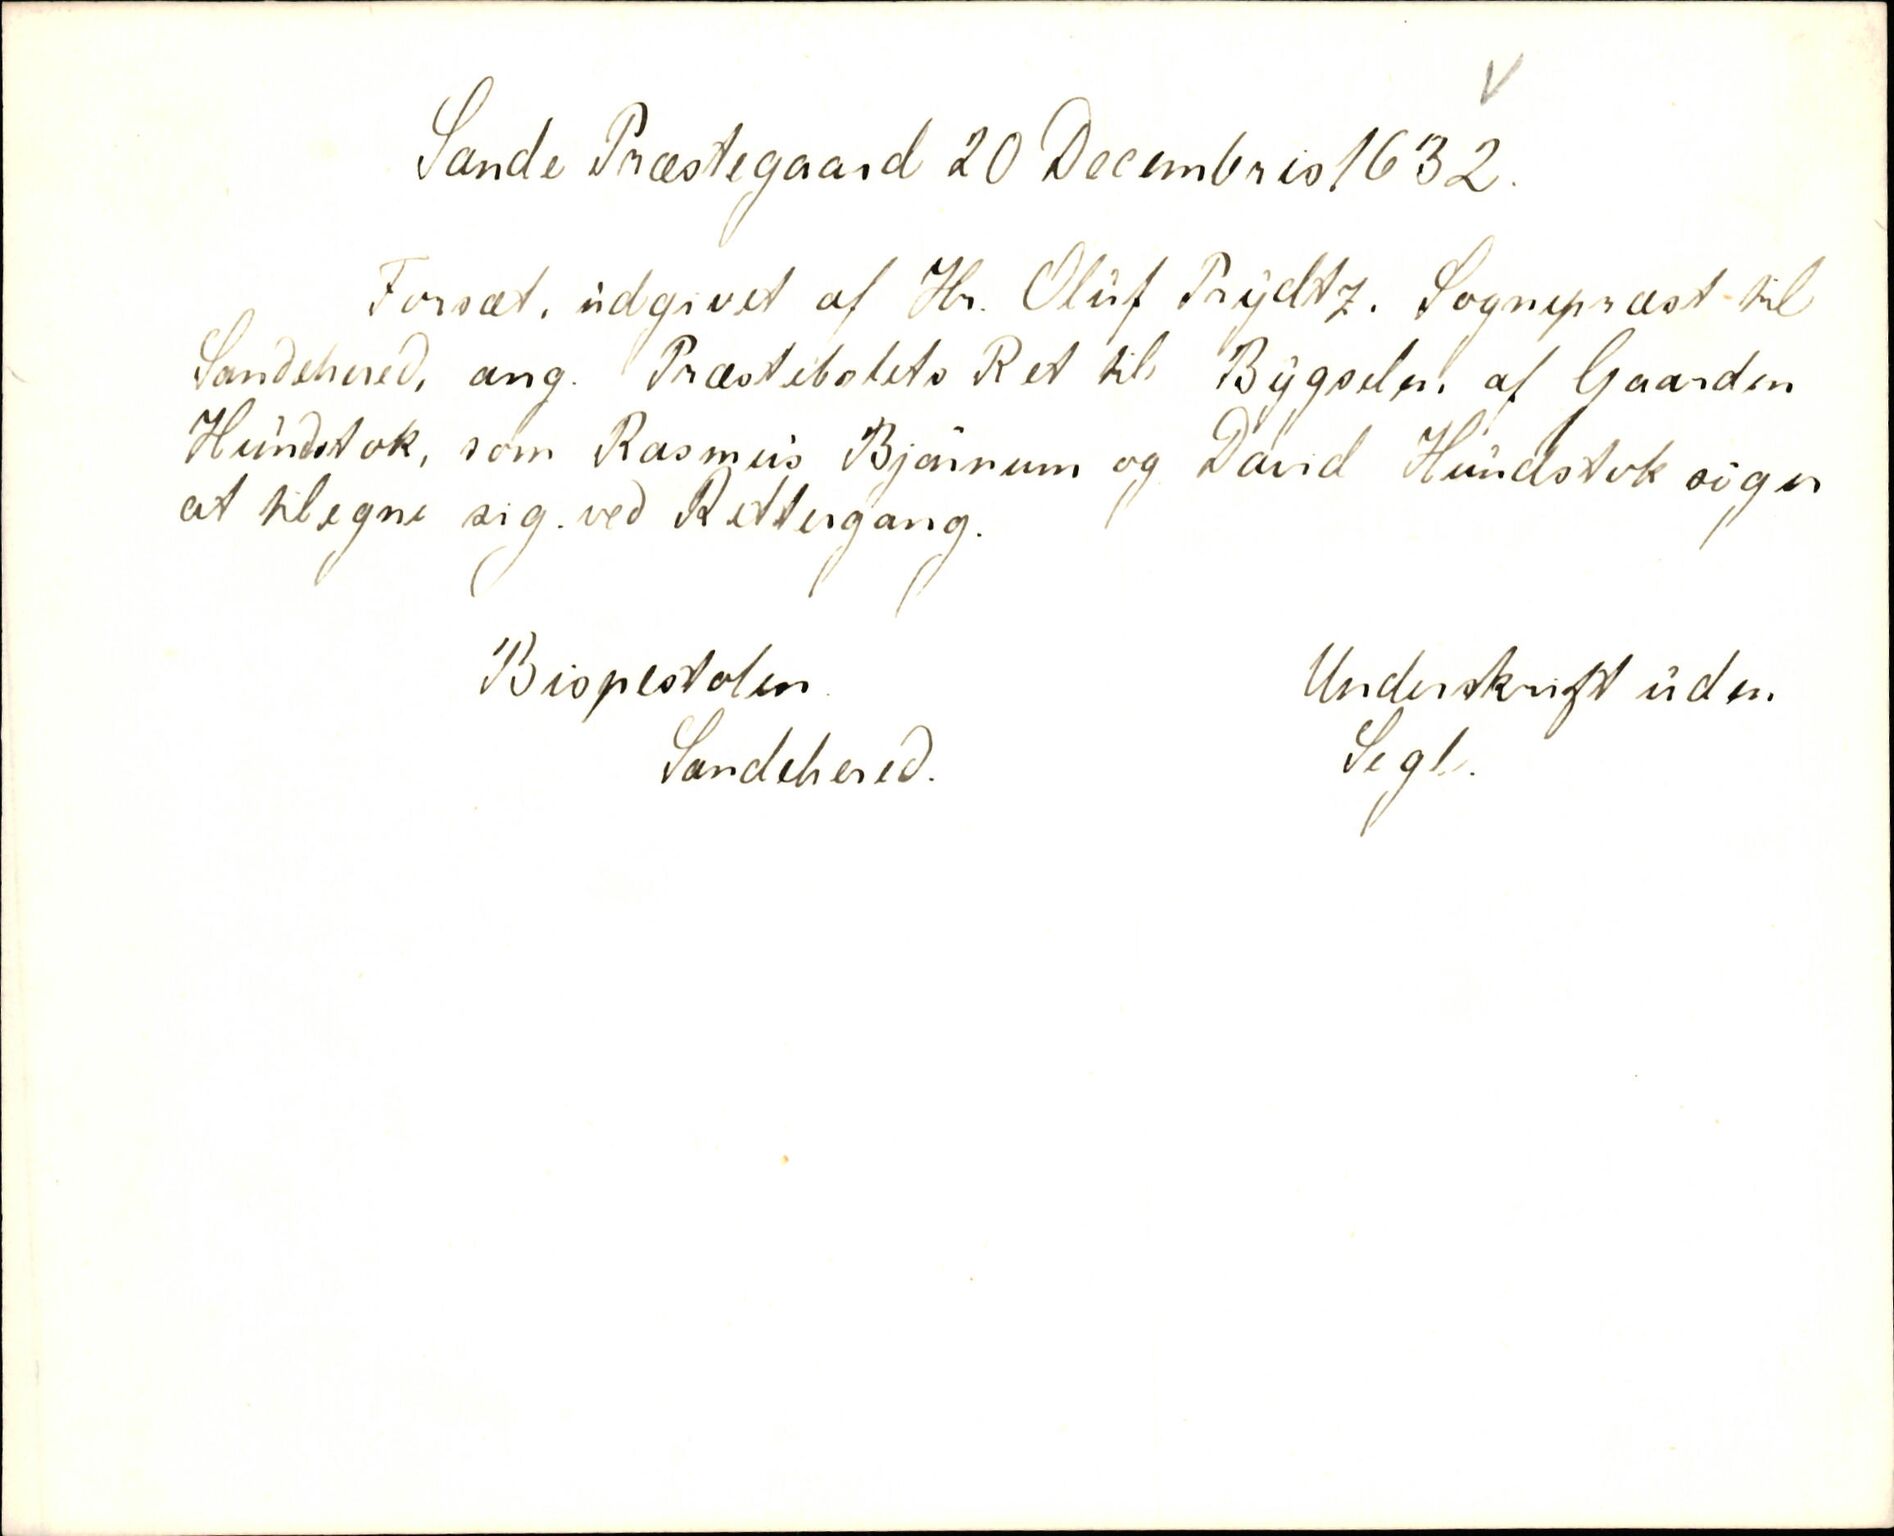 V
Sande Præstegaard 20 Decembris 1632.
Forsæt, udgivet af Hr. Oluf Prÿdtz. Sognepræst til
Sandehered, ang. Præstebolets Ret til Bÿgselen af Gaarden
Hundstok, som Rasmus Bjärnum og David Hundstok söger
at tilegne sig ved Rettergang.
Bispestolen
Sandehered.
Underskrift uden
Segl.